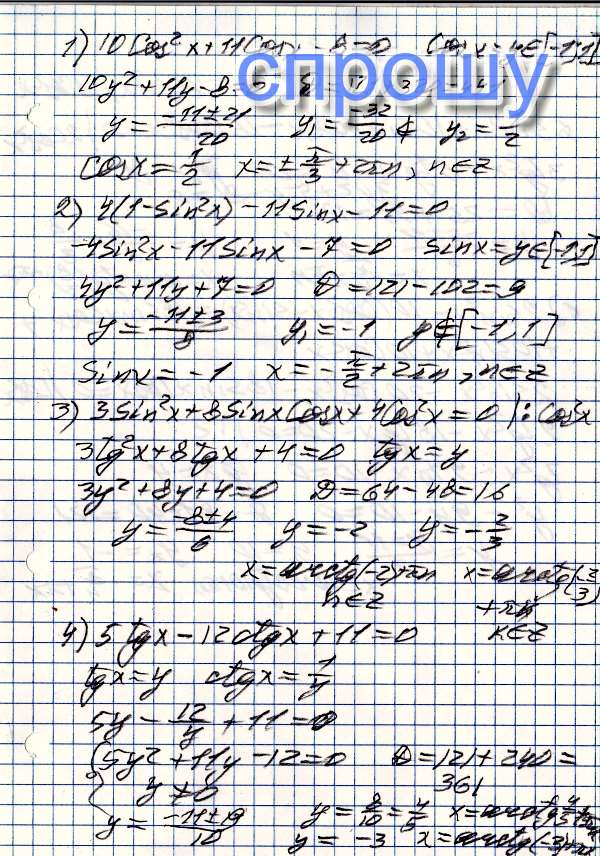 1) 10Cos²x+11Cosx-8=0 Cosx=y∈[-1;1]
10y²+11y-8=0
спрошу
y=(-11±21)/20 y₁=-32/20 ∉ y₂=1/2
Cosx=1/2 x=±π/3+2πn, n∈Z
2) 4(1-Sin²x)-11Sinx-11=0
-4Sin²x-11Sinx-7=0 sinx=y∈[-1;1]
4y²+11y+7=0 D=121-102=9
y=(-11±3)/8 y₁=-1 y∉[-1;1]
Sinx=-1 x=-π/2+2πn, n∈Z
3) 3Sin²x+8SinxCosx+4Cos²x=0 |:Cos²x
3tg²x+8tgx+4=0 tgx=y
3y²+8y+4=0 D=64-48=16
y=(-8±4)/6 y=-2 y=-2/3
x=arctg(-2)+πn x=arctg(-2/3)
n∈Z +πk
k∈Z
4) 5tgx-12ctgx+11=0
tgx=y ctgx=1/y
5y-12/y+11=0
{5y²+11y-12=0 D=121+240=
y≠0 361
y=(-11±19)/10 y=8/10=4/5 x=arctg4/5+πn
y=-3 x=arctg(-3)+πn